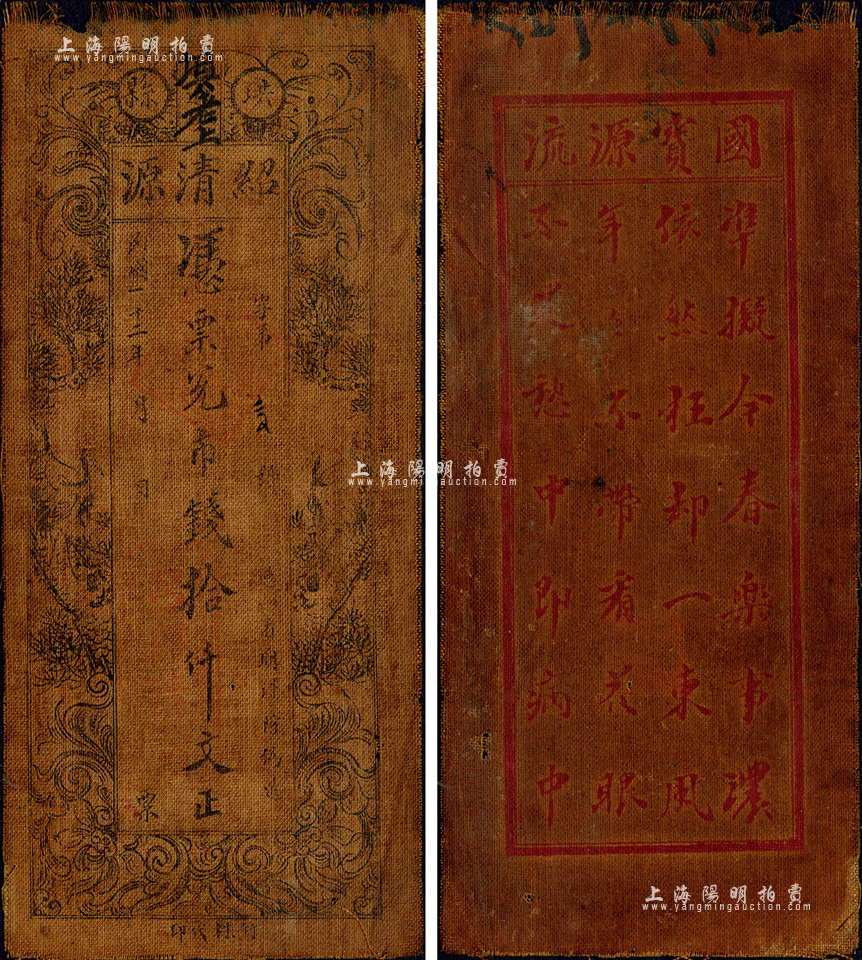 上海陽明拍賣
www.yangmingauction.com
縣
紹清源
字第
憑票兌市錢拾仟文正
民國一十二年 月 日
票
國寶源流
準擬今春樂事濃
依然枉却一東風
年々不帶看花眼
不是愁中即病中
上海陽明拍賣
www.yangmingauction.com
上海陽明拍賣
www.yangmingauction.com